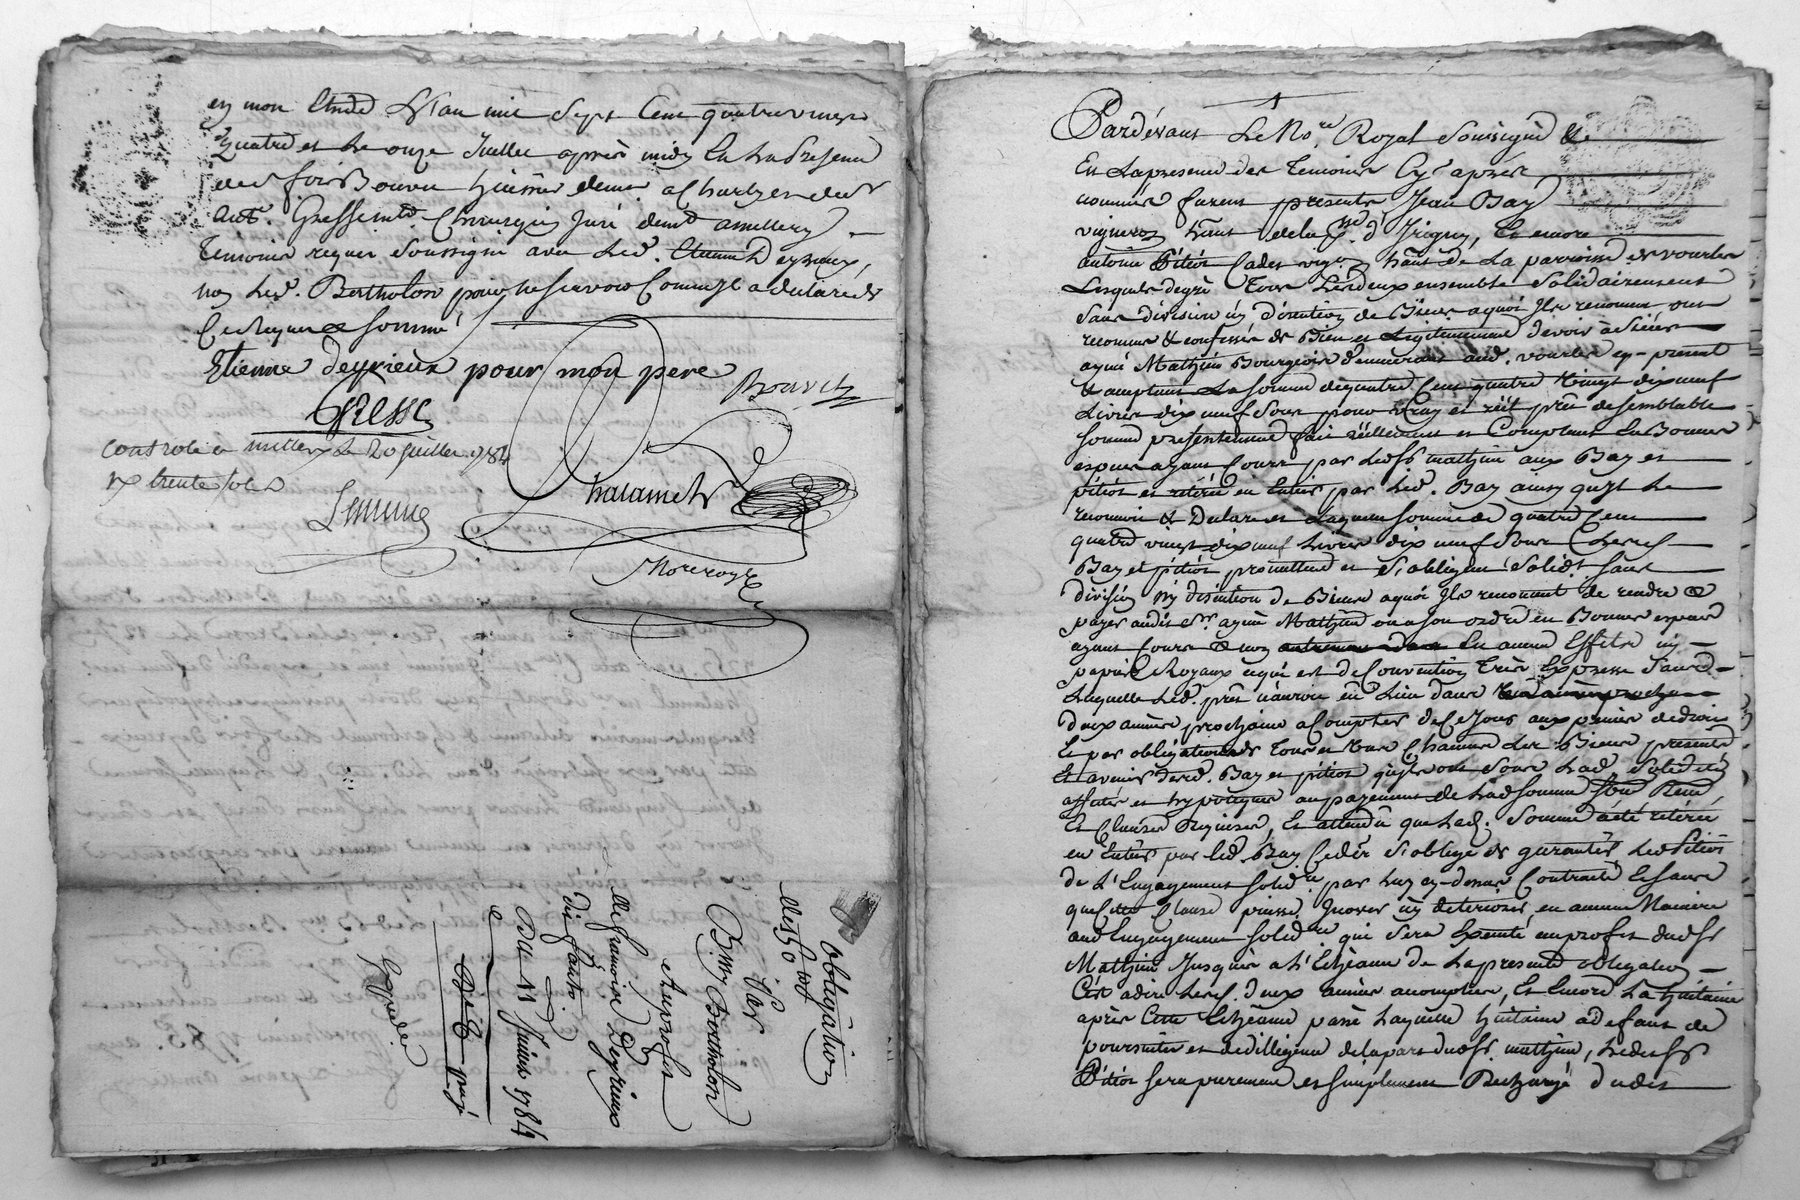 en mon Etude L'an mil Sept Cent quatrevingt
Quatre et le onze Juillet après midy En la Presence
de Sr fois Bouvet huissier demt a Charly et de Sr
Ant. Gresse Chirurgien Juré demt a millery
Temoins requis Soussignés avec Led. Etienne Deyrieux,
non Led. Bertholon pour ne Scavoir Comme il a declaré de
Ce Requis & Sommé
Etienne deyrieux pour mon pere
Bouvet
Gresse
Controlé a millery Le 20 juillet 1784
Rx trente sols
Chalamel
Obligation
de 150 lt
Pour
Bertholon
Deyrieux
Du 11 Juillet 1784
Expediée
Pardevant Le No.re Royal Soussigné &
En La presence des Temoins Cy après
nommés furent presents Jean Bay
vigneron hant de la d'Irigny, Et encore
antoine Pitiot Cadet vign hant de La paroisse de vourles
Lesquels de gré Tous Les deux ensemble Solidairement
Sans division ny discution de Biens a quoi Ils renoncent ont
reconnu & confessé de Bien et Legitimement devoir à Sieur
aymé Mathieu Bourgeois demeurant aud. vourles cy-present
& acceptant La Somme de quatre Cent quatre Vingt dix neuf
Livres dix neuf Sous pour vray et réel prêt de Semblable
Somme presentement fait réellement et Comptant En Bonnes
especes ayant Cours par Led. Sr mathieu aux Bay et
pitiot et retirée en Entier par Led. Bay ainsy qu'Il Le
reconnoit & Declare et Laquelle Somme de quatre Cent
quatre vingt dix neuf Livres dix neuf Sous Lesd.
Bay et pitiot promettent et S'obligent Solid.t Sans
division ny discution de Biens a quoi Ils renoncent de rendre &
payer audit Sr. aymé Mathieu ou a Son ordre En Bonnes especes
ayant Cours & non En aucuns Effets ny
papiers Royaux ce qui est de Convention Très Expresse Sans
Laquelle Led. prêt n'auroit eu Lieu dans
deux années prochaines a Compter de Ce Jour aux peines de droit
Et par obligation de Tous et Un Chacun Les Biens presents
Et avenir desd. Bay et pitiot qu'ils ont Sous Lad. Solidité
affectés et hypotequés au payement de Lad. Somme
Et Clauses Requises, Et attendu que Lad. Somme a été retirée
en Entier par led. Bay Celui ci S'oblige de garantir Led. Pitiot
de L'Engagement Solid.re par Luy cy-dessus Contracté Et Sans
que Cette Clause puisse Inover ny deteriorer en aucune Maniere
aud. Engagement Solid.re qui Sera Executé au profit dud. Sr
Mathieu Jusques a L'Echéance de La presente obligation
C'est a dire Lesd. deux années accomplies, Et Encore La huitaine
après Cette Echéance passé Laquelle huitaine a defaut de
poursuites et de dilligence de la part dud. Sr. mathieu, Led.
Pitiot Sera purement et Simplement Dechargé dudit